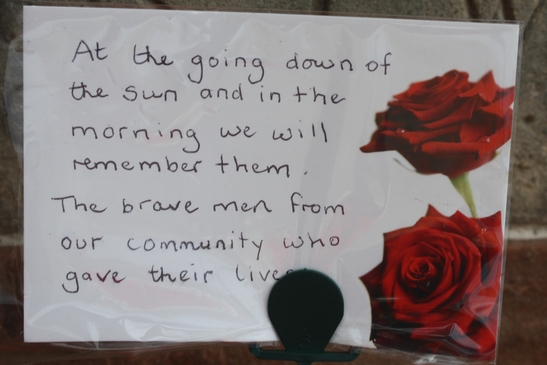 At the going down of
the sun and in the
morning we will
remember them.
The brave men from
our community who
gave their